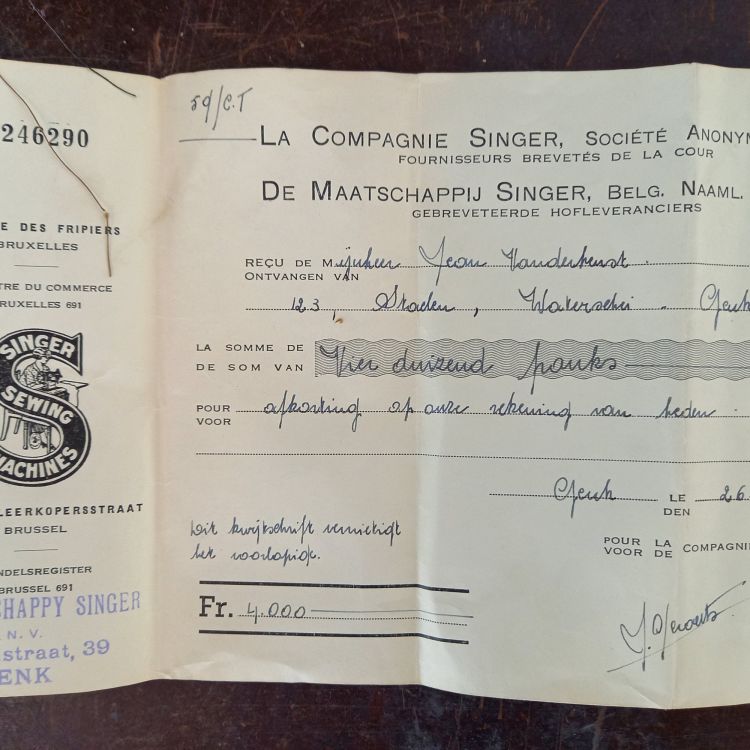 246290
E DES FRIPIERS
BRUXELLES
TRE DU COMMERCE
RUXELLES 691
SINGER
SEWING
MACHINES
LEERKOPERSSTRAAT
BRUSSEL
NDELSREGISTER
BRUSSEL 691
CHAPPY SINGER
N. V.
straat, 39
ENK
59/C.T
LA COMPAGNIE SINGER, SOCIÉTÉ ANONYM
FOURNISSEURS BREVETÉS DE LA COUR
DE MAATSCHAPPIJ SINGER, BELG. NAAML.
GEBREVETEERDE HOFLEVERANCIERS
REÇU DE M Jean
ONTVANGEN VAN
123, Staden, Waterschei - Genk
LA SOMME DE
DE SOM VAN
Vier duizend franks
POUR
VOOR
afkorting op onze rekening van heden.
Genk LE 26
DEN
Dit kwijtschrift vernietigt
het voorlopige.
POUR LA
VOOR DE COMPAGNIE
Fr. 4.000